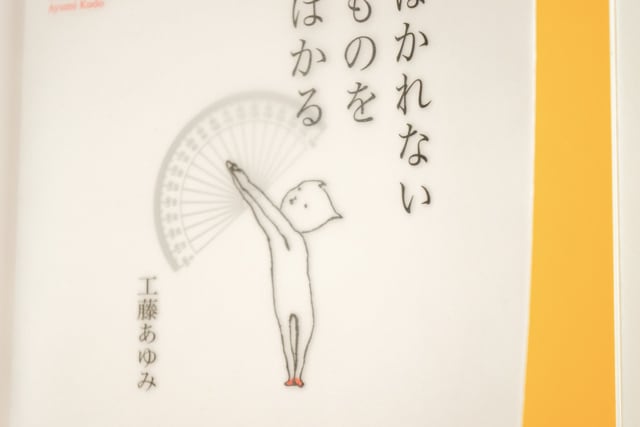 Ayumi Kudo
はかれない
ものを
はかる
工藤あゆみ